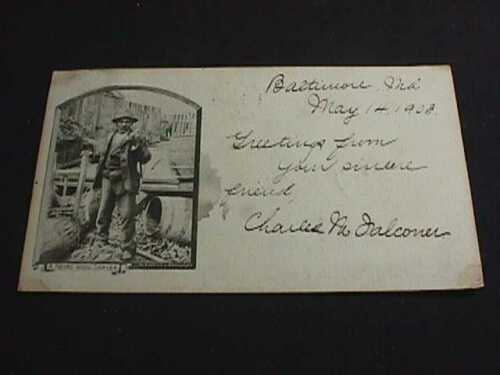 Baltimore Md
May 14, 1908.
Greetings from
your sincere
friend,
Charles M Falconer